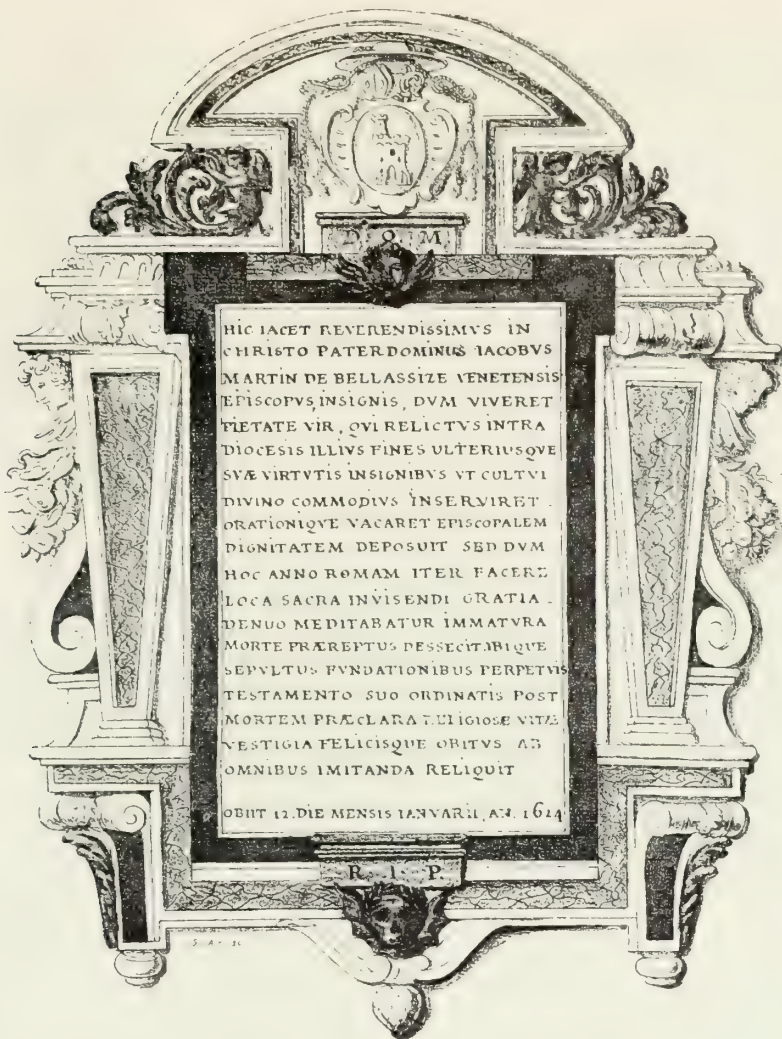 D. O. M
HIC IACET REVERENDISSIMVS IN
CHRISTO PATER DOMINUS IACOBVS
MARTIN DE BELLASSIZE VENETENSIS
EPISCOPVS, INSIGNIS, DVM VIVERET
PIETATE VIR, QVI RELICTVS INTRA
DIOCESIS ILLIVS FINES ULTERIUSQVE
SVÆ VIRTVTIS INSIGNIBVS VT CVLTVI
DIVINO COMMODIVS INSERVIRET.
ORATIONIQVE VACARET EPISCOPALEM
DIGNITATEM DEPOSUIT SED DVM
HOC ANNO ROMAM ITER FACERE
LOCA SACRA INVISENDI GRATIA.
DENUO MEDITABATUR IMMATVRA
MORTE PRÆREPTUS DESSECIT. IBIQUE
SEPVLTUS FVNDATIONIBUS PERPETVIS
TESTAMENTO SUO ORDINATIS POST
MORTEM PRÆCLARA RELIGIOSÆ VITÆ
VESTIGIA FELICISQUE OBITVS AB
OMNIBUS IMITANDA RELIQUIT
OBIIT 12. DIE MENSIS IANVARII, AN. 1624
R. I. P.